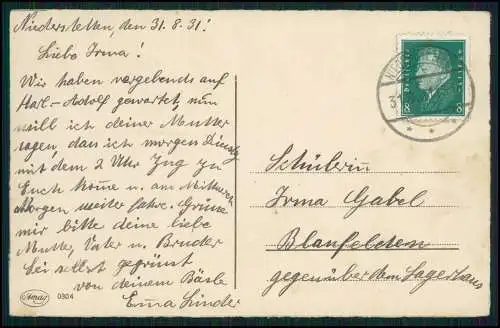 Niederstetten, den 31.8.31!
Liebe Irma!
Wir haben vergebends auf
Karl-Adolf gewartet, nun
will ich deiner Mutter
sagen, das ich morgen Dienstg
mit dem 2 Uhr Zug zu
Euch kome u. am Mittwoch
Morgen weiter fahre. Grüße
mir bitte deine liebe
Mutter, Vater u. Bruder
Sei selbst gegrüßt
von deinem Bäsle
Emma Linder
Amag 0304
DEUTSCHES REICH
8 8
Schülerin
Irma Gabel
Blaufelden
gegenüber dem Lagerhaus